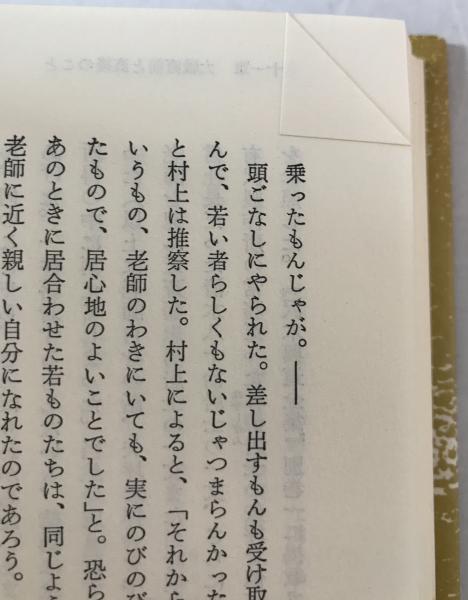 乗ったもんじゃが。――
頭ごなしにやられた。差し出すもんも受け取
んで、若い者らしくもないじゃつまらんかった
と村上は推察した。村上によると、「それから
いうもの、老師のわきにいても、実にのびのび
たもので、居心地のよいことでした」と。恐ら
あのときに居合わせた若ものたちは、同じよう
老師に近く親しい自分になれたのであろう。